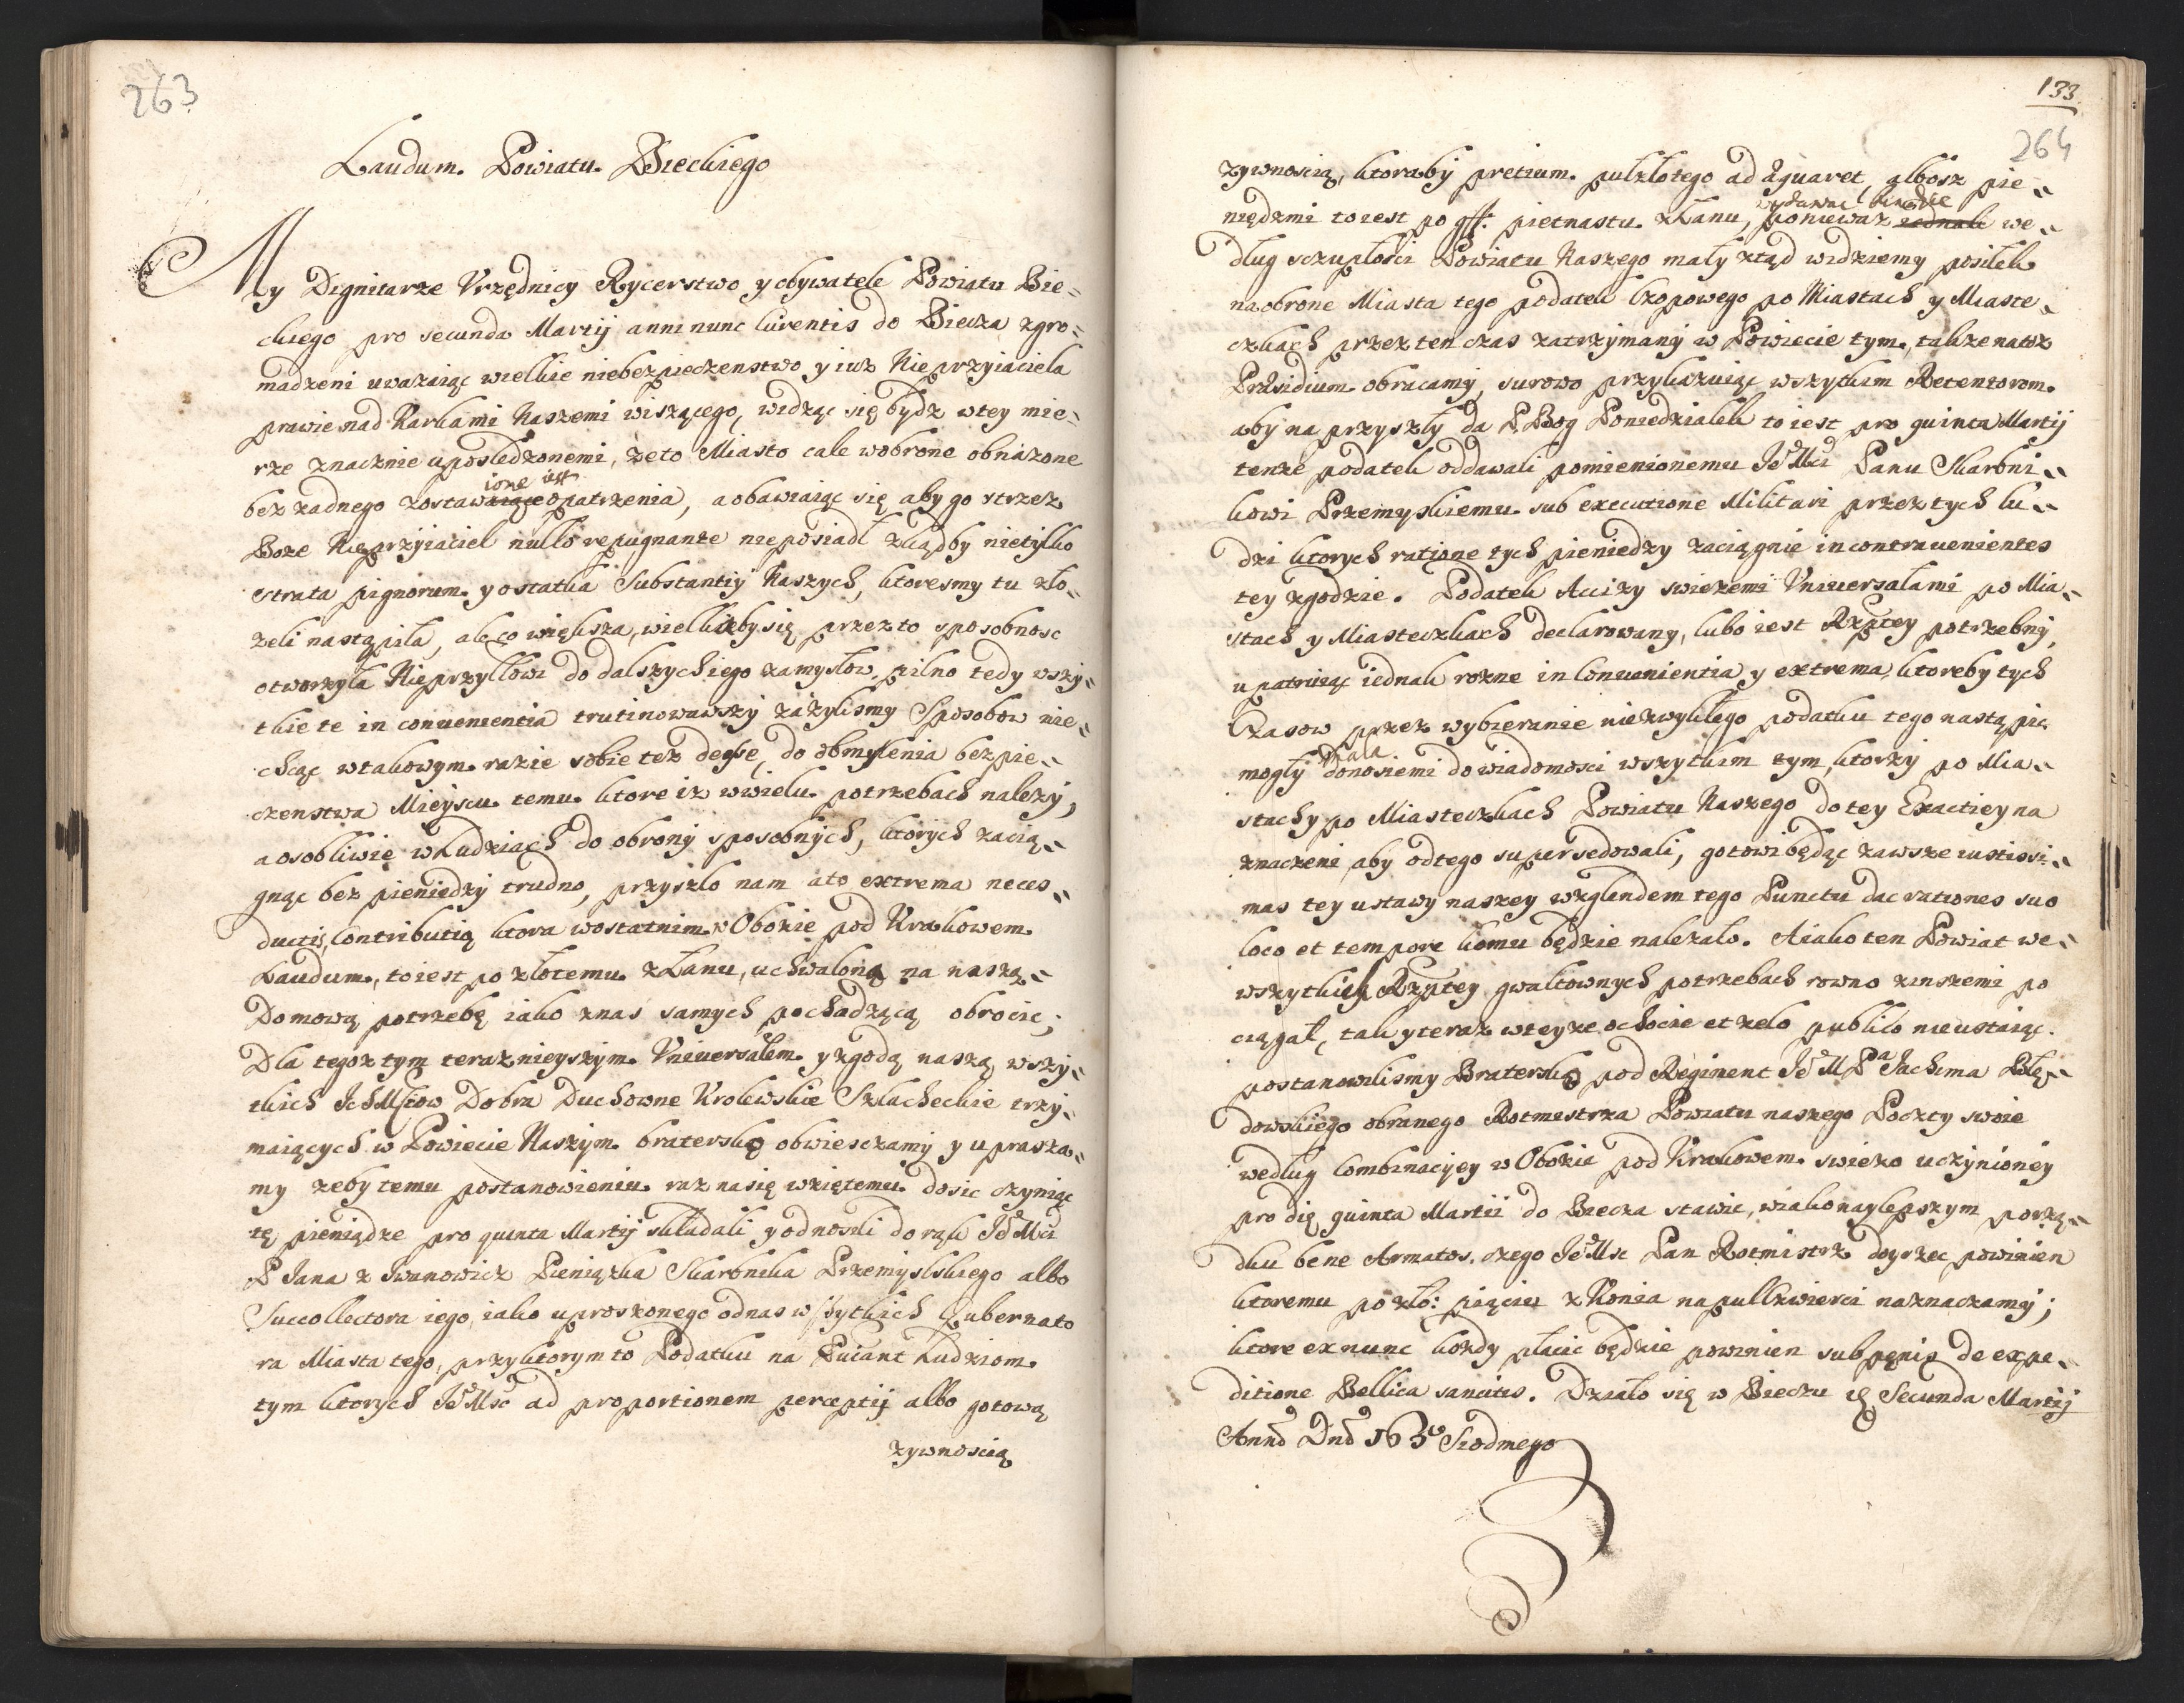 263
Laudum. Powiatu. Bieckiego
My Dignitarze Vrzędnicy Rycerstwo y obywatele Powiatu Bie=
ckiego pro secunda Martij anni nunc currentis do Biecza zgro=
madzeni uwazaiąc wielkie niebezpieczenstwo y iuz Nieprzyiaciela
prawie nad Karkami Naszemi wiszącego, widząc się bydz w tey mie=
rze znacznie uposledzonemi, ze to Miasto cale w obronę obnażone
ione iest
bez zadnego zostawaiące opatrzenia, a obawiaiąc się aby go strzez
Boze Nieprzyiaciel nullo repugnante nieposiadł zkądby nietylko
strata pignorum y ostatka Substantij Naszych, ktoresmy tu zło=
zeli nastąpiła, ale co większa, wielkaby się przez to sposobnosc
otworzyła Nieprzyłłowi do dalszych iego zamysłow, pilno tedy wszy=
tkie te in conuenientia trutinowawszy zażylismy Sposobow nie=
chcąc w takowym razie sobie tez deesse, do obmyslenia bezpie=
czenstwa Mieyscu temu ktore iz w wielu potrzebach nalezy,
a osobliwie w Ludziach do obrony sposobnych, ktorych zacią=
gnąc bez pieniedzy trudno, przyszło nam a to extrema neces=
ductis, Contributią ktora w ostatnim w Obozie pod Krakowem
Laudum, to iest po złotemu z Łanu, uchwaloną na naszą=
Domową potrzebę iako znas samych pochadzącą obrocic;
Dla tegoz tym teraznieyszym Vniuersałem y zgodą naszą wszy=
tkich IchMsciow Dobra Duchowne Krolewskie Szlacheckie trzy=
maiących w Powiecie Naszym bratersko obwiesczamy y uprasza=
my zeby temu postanowieniu raz na się wziętemu dosic czyniąc
tę pieniądze pro quinta Martij składali y odnosili do rąk JeMci
P Jana z Iwanowicz Pieniązka Skarbnika Przemyslskiego albo
Succollectora iego, iako uproszonego odnas wszytkich Gubernato
ra Miasta tego, przy ktorym to Podatku na Ludziom
tym ktorych JeMsc ad proportionem perceptij albo gotową
zywnoscią
133
264
zywnoscią, ktoraby pretium pułzłotego adæquaret, albosz pie=
wydawac będzie
niędzmi to iest po gß: pietnastu z Łanu, poniewaz iednak we=
dług sczupłosci Powiatu Naszego mały ztąd widziemy posiłek
na obrone Miasta tego podatek Czopowego po Miastach y Miaste=
czkach przez ten czas zatrzymany w Powiecie tym, takze na tosz
Præsidium obracamy, surowo przykazuiąc wszytkim Retentorom
aby na przyszły da P. Bog Poniedziałek to iest pro quinta Martij
tenze podatek oddawali pomienionemu JeMci Panu Skarbni=
kowi Przemyskiemu sub executione Militari przez tych lu=
dzi ktorych ratione tych pieniedzy zaciągnie in contrauenientes
tey zgodzie. Podatek Accizy swiezemi Vniuersałami po Mia=
stach y Miasteczkach declarowany, lubo iest Rzptey potrzebny,
upatruiąc iednak rozne inconuenientia y extrema, ktoreby tych
Czasow przez wybieranie niezwykłego podatku tego nastąpic
mogły donosiemi do wiadomosci wszytkim tym, ktorzy po Mia=
stach y po Miasteczkach Powiatu Naszego do tey Exactiey na
znaczeni aby od tego supersedowali, gotowi będąc zawsze iustissi=
mas tey ustawy naszey wzglendem tego Punctu dac rationes suo
loco et tempore komu będzie nalezało. A iako ten Powiat we=
wszytkich Rzptey gwałtownych potrzebach rowno zinszemi po
ciągał, tak y teraz w teyze ochocie et zelo publico nieustaiąc
postanowilismy Bratersko pod Regiment Je M Pa Jachima Błę=
dowskiego obranego Rotmistrza Powiatu naszego Poczty swoie
według Combinacyey w Obozie pod Krakowem swiezo uczynioney
pro die quinta Martii do Biecza stawic, w iako naylepszym porzą=
dku bene Armatos, czego JeMsc Pan Rotmistrz doyrzec powinien
ktoremu po zło: pięciu z Konia na pullzwierci naznaczamy;
ktore ex nunc kozdy płacic będzie powinien sub pœnis de expe=
ditione Bellica sancitis. Działo się w Bieczu Secunda Martij
Anno Dno Siodmego